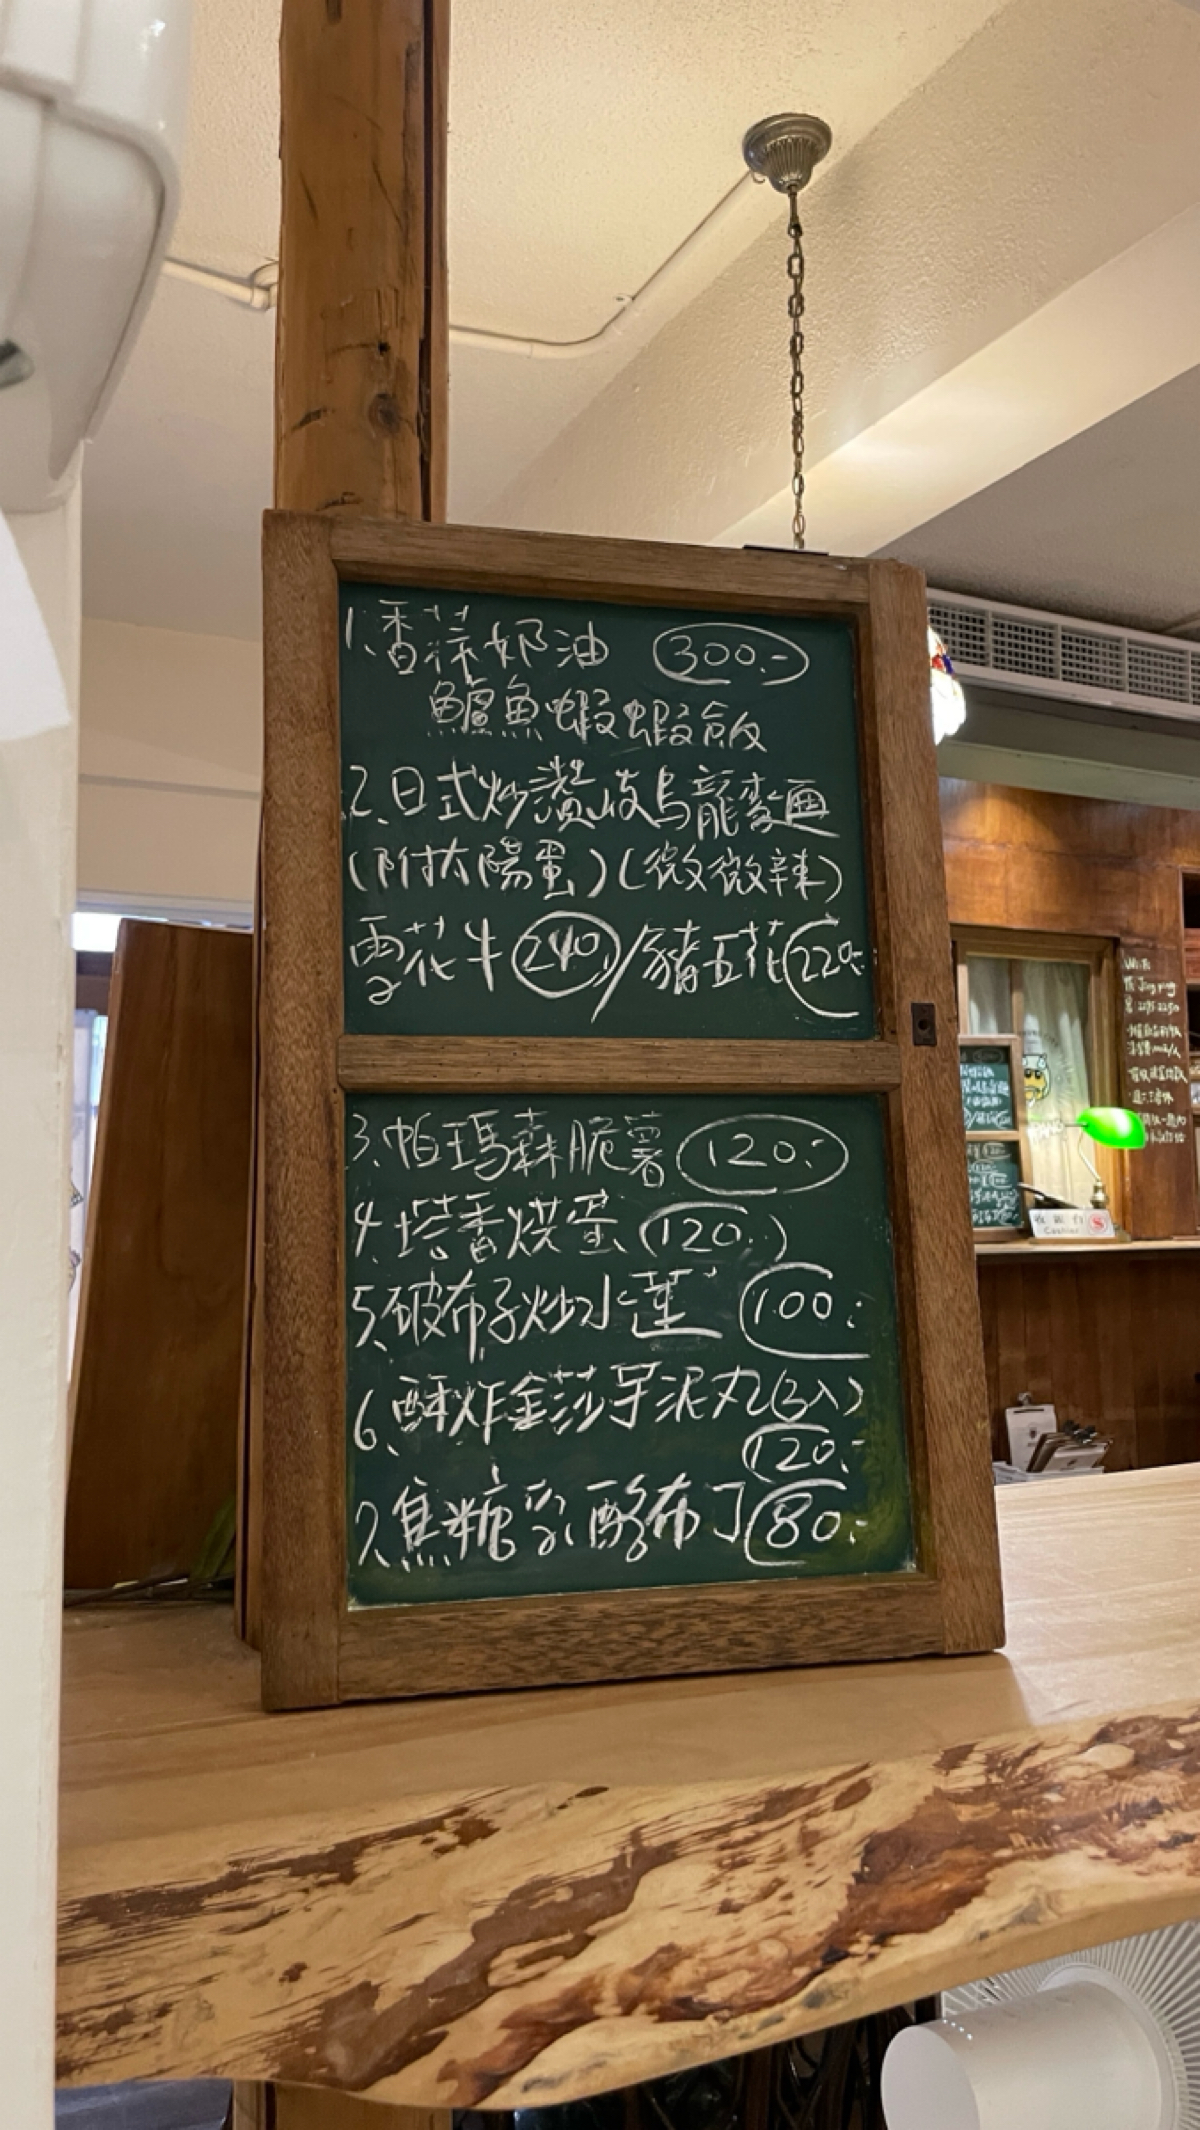 1、香蒜奶油 300.-
鱸魚蝦蝦飯
2、日式炒讚岐烏龍麵
(附太陽蛋)(微微辣)
雪花牛 240./豬五花 220.-
3、帕瑪森脆薯 120.-
4、塔香烘蛋 120.-
5、破布子炒水蓮 100.-
6、酥炸金莎芋泥丸(3入)
120.-
7、焦糖乳酪布丁 80.-
Wi-Fi
Cashier